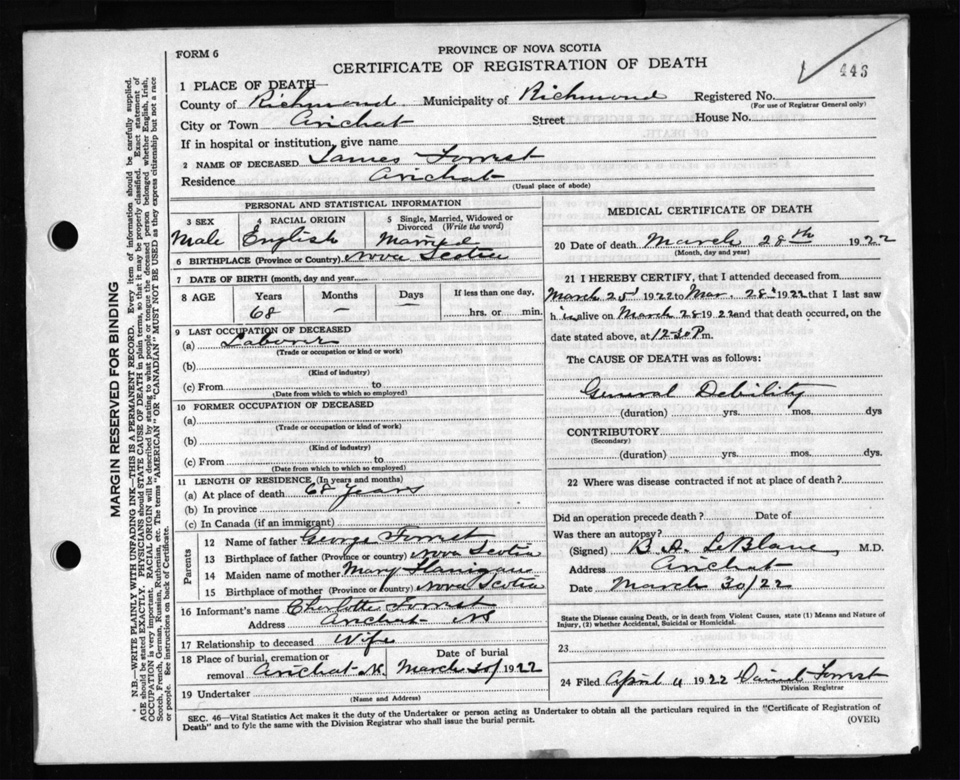 FORM 6
PROVINCE OF NOVA SCOTIA
CERTIFICATE OF REGISTRATION OF DEATH
446
1 PLACE OF DEATH—
County of Richmond Municipality of Richmond Registered No.
(For use of Registrar General only)
City or Town Arichat Street House No.
If in hospital or institution, give name
2 NAME OF DECEASED James Forrest
Residence Arichat
(Usual place of abode)
PERSONAL AND STATISTICAL INFORMATION
3 SEX 4 RACIAL ORIGIN 5 Single, Married, Widowed or Divorced (Write the word)
Male English Married
6 BIRTHPLACE (Province or Country) Nova Scotia
7 DATE OF BIRTH (month, day and year)
8 AGE Years Months Days If less than one day,
68 — hrs. or min.
9 LAST OCCUPATION OF DECEASED
(a) Laborer
(Trade or occupation or kind or work)
(b)
(Kind of industry)
(c) From to
(Date from which to which so employed)
10 FORMER OCCUPATION OF DECEASED
(a)
(Trade or occupation or kind of work)
(b)
(Kind of industry)
(c) From to
(Date from which to which so employed)
11 LENGTH OF RESIDENCE (In years and months)
(a) At place of death 68 Years
(b) In province
(c) In Canada (if an immigrant)
Parents
12 Name of father George Forrest
13 Birthplace of father (Province or country) Nova Scotia
14 Maiden name of mother Mary Flanigan
15 Birthplace of mother (Province or country) Nova Scotia
16 Informant's name Charlotte Forrest
Address Arichat NS
17 Relationship to deceased Wife
18 Place of burial, cremation or removal Arichat N. Date of burial March 30/1922
19 Undertaker
(Name and Address)
MEDICAL CERTIFICATE OF DEATH
20 Date of death March 28th 1922
(Month, day and year)
21 I HEREBY CERTIFY, that I attended deceased from
March 25 1922 to Mar. 28 1922 that I last saw
h is alive on March 28 1922 and that death occurred, on the
date stated above, at 12-30 P m.
The CAUSE OF DEATH was as follows:
General Debility
(duration) yrs. mos. dys
CONTRIBUTORY
(Secondary)
(duration) yrs. mos. dys.
22 Where was disease contracted if not at place of death?
Did an operation precede death? Date of
Was there an autopsy?
(Signed) B A LeBlanc M.D.
Address Arichat
Date March 30/22
State the Disease causing Death, or in death from Violent Causes, state (1) Means and Nature of
Injury, (2) whether Accidental, Suicidal or Homicidal.
23
24 Filed April 4 1922 Daniel Forrest
Division Registrar
SEC. 46—Vital Statistics Act makes it the duty of the Undertaker or person acting as Undertaker to obtain all the particulars required in the "Certificate of Registration of
Death" and to fyle the same with the Division Registrar who shall issue the burial permit.
(OVER)
MARGIN RESERVED FOR BINDING
N.B.—WRITE PLAINLY WITH UNFADING INK—THIS IS A PERMANENT RECORD. Every item of information should be carefully supplied.
AGE should be stated EXACTLY. PHYSICIANS should STATE CAUSE OF DEATH in plain terms, so that it may be properly classified. Exact statement of
OCCUPATION is very important. RACIAL ORIGIN will be described by stating to what people or tongue the deceased person belonged whether English, Irish,
Scotch, French, German, Russian, Ruthenian, etc. The terms "AMERICAN" or "CANADIAN" MUST NOT BE USED as they express citizenship but not a race
or people. See instructions on back of Certificate.